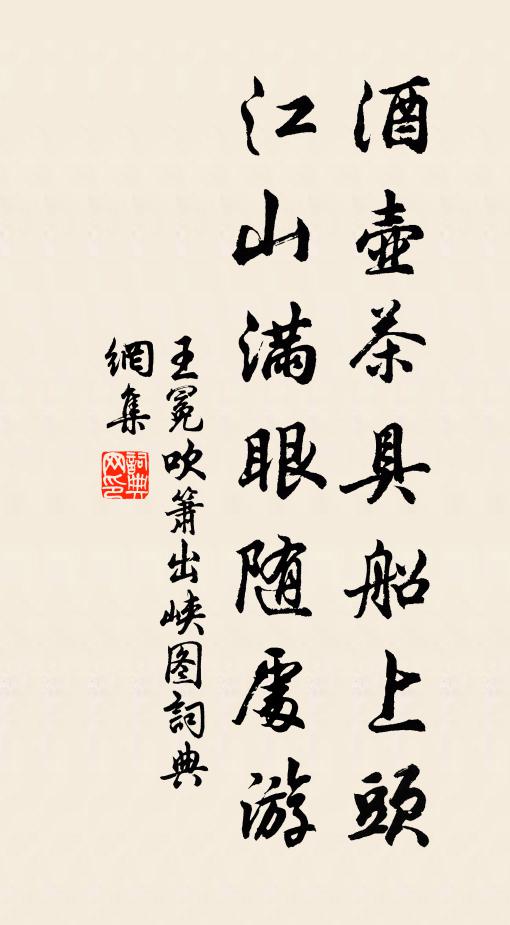 酒壺茶具船上頭
江山滿眼随處游
王冕吹簫出峡图詞典
網集
詞典
网印